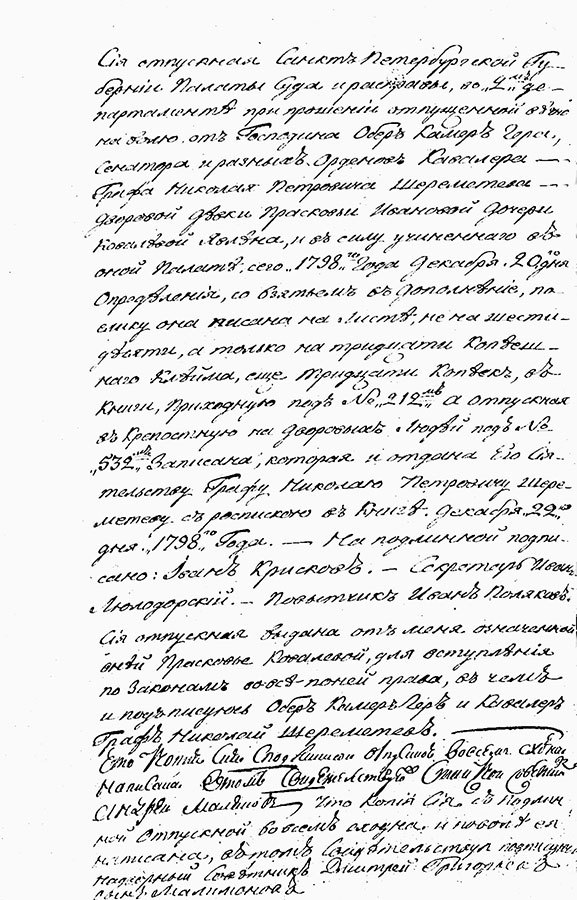 Сія отпускная Санктъ Петербургской Гу-
берніи Палаты Суда и расправы, во „2мъ„ де-
партаментѣ при прошеніи отпущенной вѣчно
на волю отъ Господина Оберъ Камеръ Гера,
Сенатора и разныхъ Орденовъ Кавалера —
Графа Николая Петровича Шереметева —
дворовой дѣвки Прасковьи Ивановой дочери
Ковалевой явлена, и въ силу учиненнаго въ
оной Палатѣ, сего „1798го„ Года Декабря „20 дня
Опредѣленія, со взятьемъ въ дополненіе, по-
елику она писана на Листѣ, не на шести-
десяти, а только на тридцати Копѣеш-
наго Клейма, еще тридцати Копѣекъ, въ
Книги, Приходную подъ № „212мъ„ а отпускная
въ Крепостную на дворовыхъ Людей подъ №
„532мъ„ Записана, которая и отдана Его Сія-
тельству Графу Николаю Петровичу Шере-
метеву съ роспискою въ Книгѣ. Декабря „22го
дня „1798го„ Года. — На подлинной подпи-
сано: Иванъ Крисковъ. — Секретарь Иванъ
Люлодорский. — Повытчикъ Иванъ Поляковъ.
Сія отпускная выдана отъ меня означенной
Прасковье Ковалевой, для вступленія
по Законамъ во всѣ поней права, въ чемъ
и подъписуюсь Оберъ Камеръ Геръ и Кавалеръ
Графъ Николай Шереметевъ.
Сподлинною во всемъ сходна
написана Втомъ Свидетельствую
Андрей Малимовъ Что Копія Сія съ подлин-
ной Отпускной во всемъ сходна и поволе ея
написана, въ томъ Свидѣтельствуя подписуюсь
надворный Совѣтникъ Дмитрей Григорьевъ
сынъ Малимоновъ